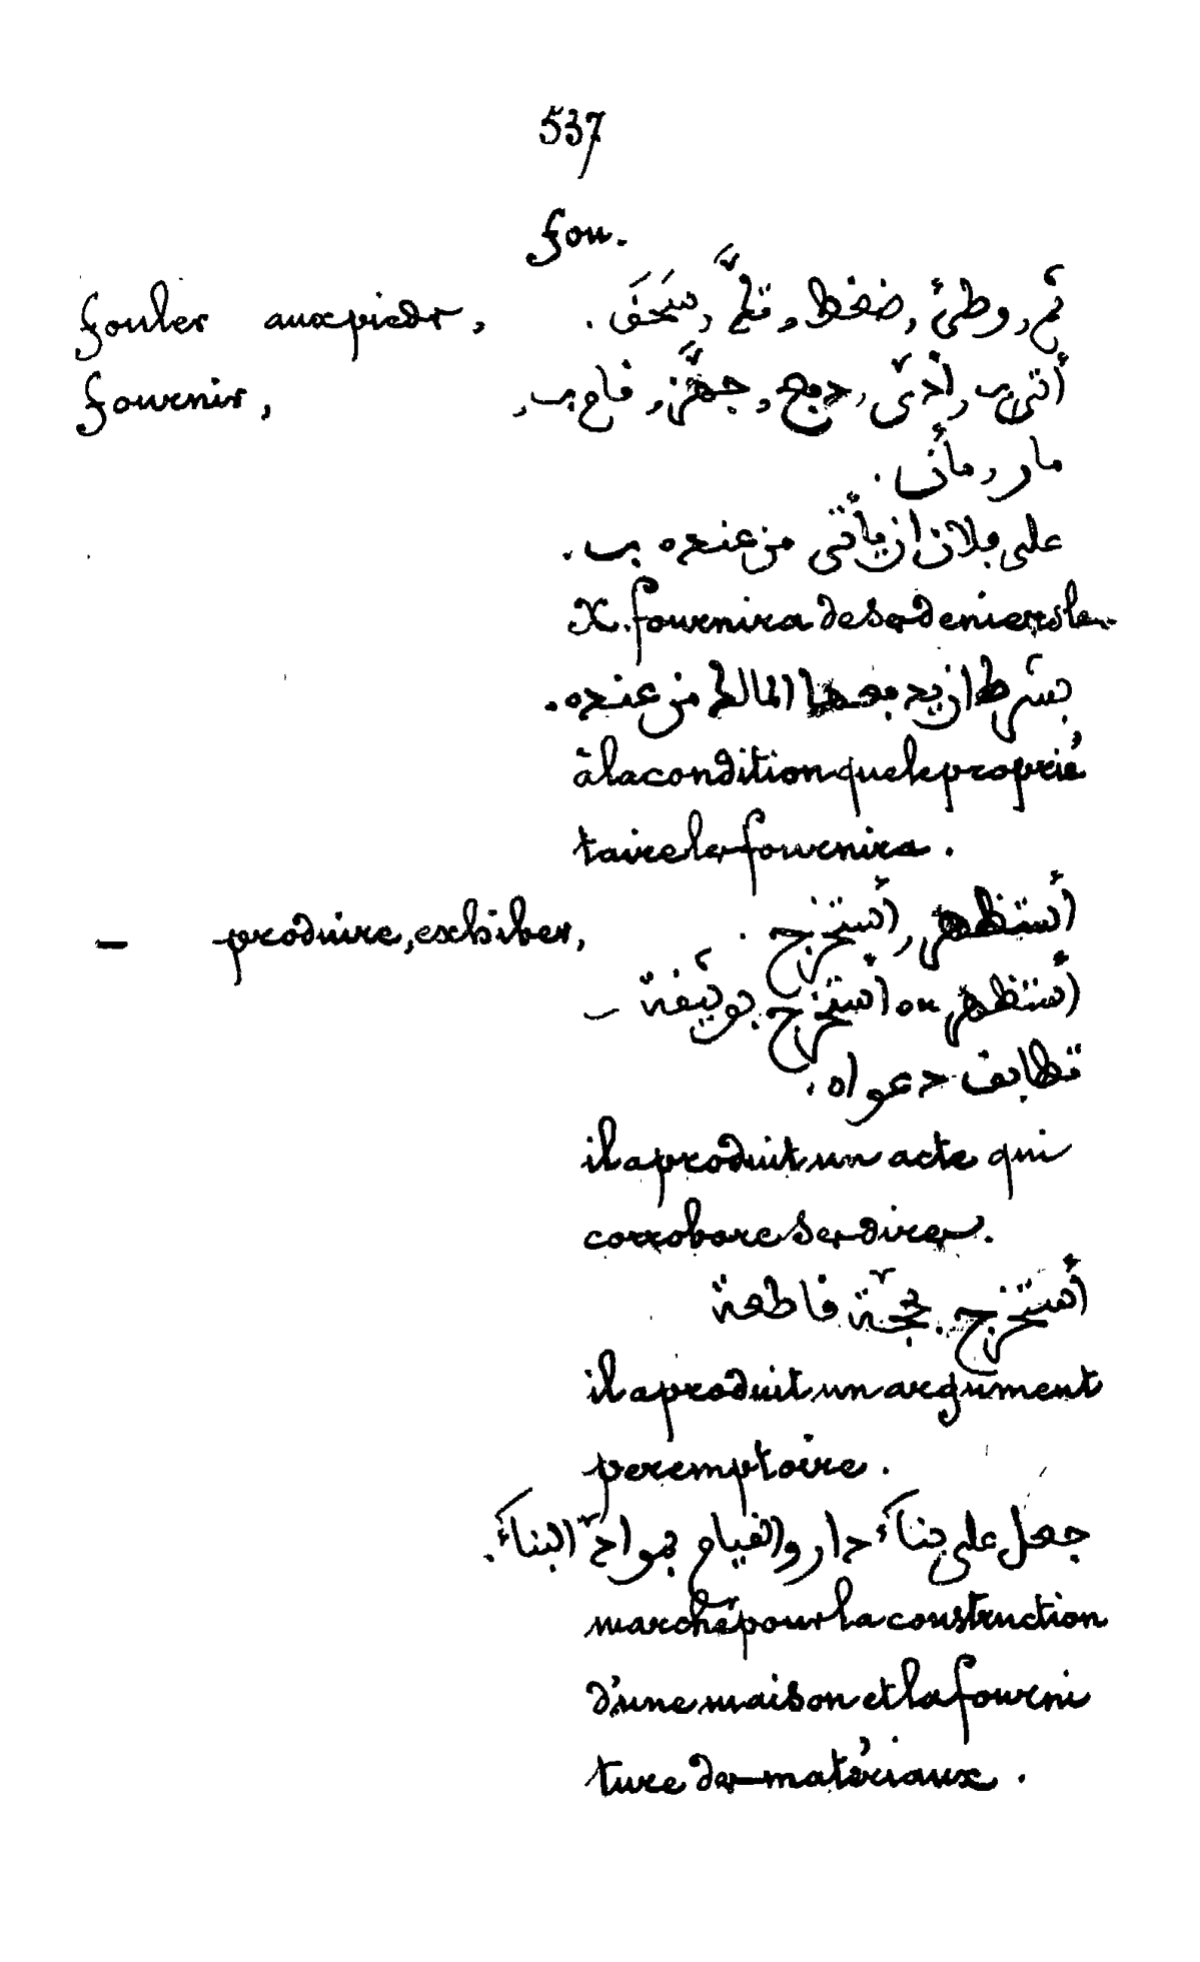 537
fou.
fouler aux pieds, وطئ, ضغط, سَحَقَ.
fournir, أتى ب, أدّى, دفع, وجهّز, قام ب,
مار, مأن.
على فلان ان يأتى من عنده ب.
X. fournira de ses deniers le..
بشرط ان يدفعها المالك من عنده.
à la condition que le proprié
taire les fournira.
— produire, exhiber, أستظهر, أستخرج.
أستظهر ou أستخرج بوثيقة –
تطابق دعواه.
il a produit un acte qui
corrobore ses dires.
أستخرج بحجّة قاطعة
il a produit un argument
peremptoire.
جعل على بناء دار والقيام بموادّ البناء.
marché pour la construction
d'une maison et la fourni
ture des matériaux.